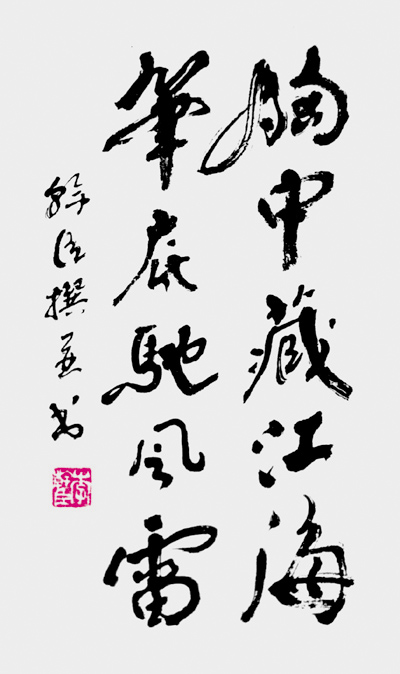 胸中藏江海
筆底馳風雷
撰並书